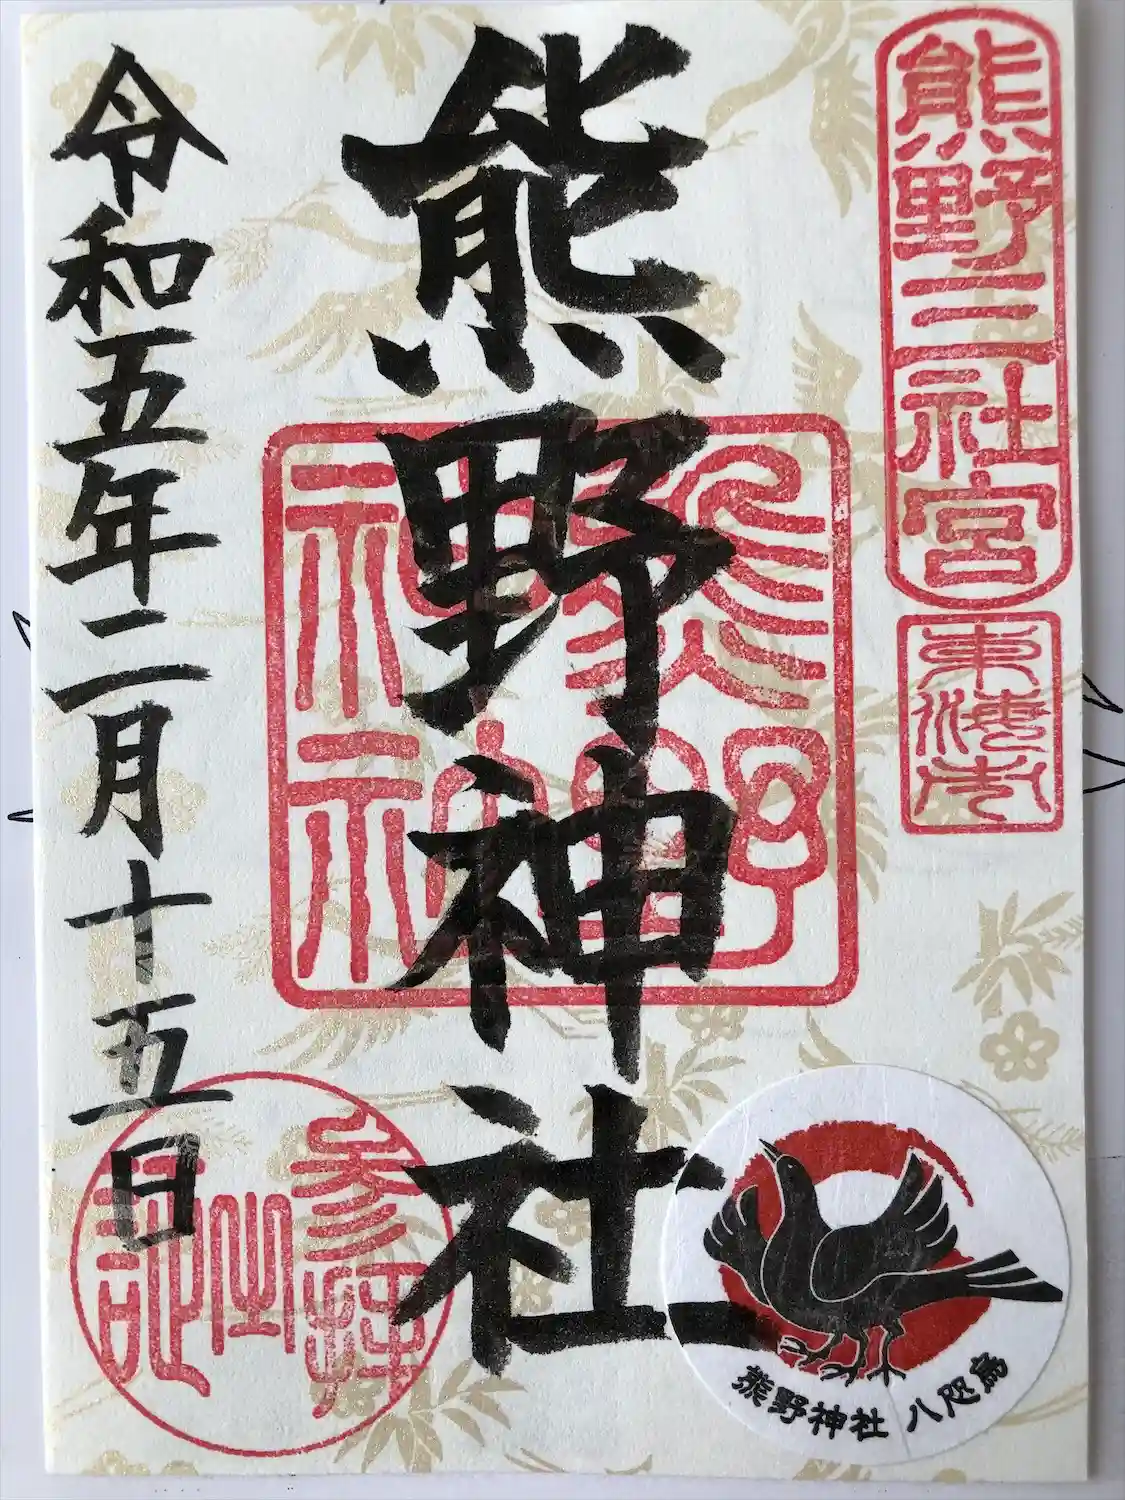 熊野三社宮
東海市
熊野神社
令和五年二月十五日
参拝之記
熊野神社 八咫烏